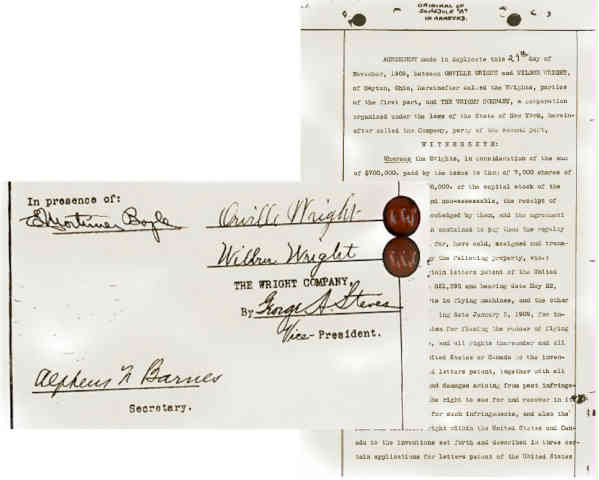 ORIGINAL OF
SCHEDULE "A"
IN ANNEXED.
AGREEMENT made in duplicate this 27th day of
November, 1909, between ORVILLE WRIGHT and WILBUR WRIGHT,
of Dayton, Ohio, hereinafter called the Wrights, parties
of the first part, and THE WRIGHT COMPANY, a corporation
organized under the laws of the State of New York, herein-
after called the Company, party of the second part,
WITNESSETH:
Whereas the Wrights, in consideration of the sum
of $700,000. paid by the issue to them of 7,000 shares of
0,000. of the capital stock of the
nd non-assessable, the receipt of
owledged by them, and the agreement
n contained to pay them the royalty
for, have sold, assigned and trans-
y the following property, viz.:
tain letters patent of the United
821,393 and bearing date May 22,
ts in flying machines, and the other
ing date January 5, 1909, for im-
for flexing the rudder of flying
, and all rights thereunder and all
ited States or Canada to the inven-
d letters patent, together with all
nd damages arising from past infringe-
he right to sue for and recover in it
for such infringements, and also the
right within the United States and Can-
ada to the inventions set forth and described in three cer-
tain applications for letters patent of the United States
In presence of:
E Mortimer Boyle
Orville Wright
Wilbur Wright
THE WRIGHT COMPANY,
By George A. Steves
Vice-President.
Alpheus F Barnes
Secretary.